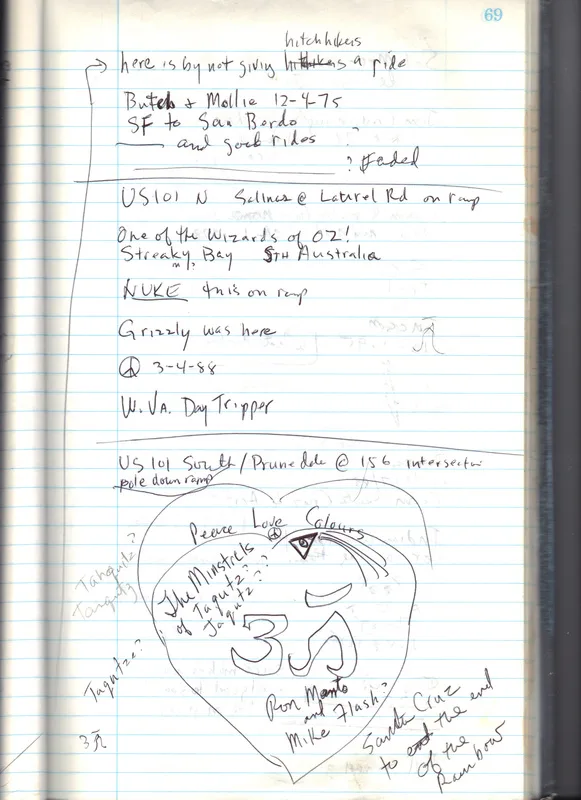 69
hitchhikers
here is by not giving hitthikers a ride
Butch & Mollie 12-4-75
SF to San Berdo
and good rides ?
? Faded
US101 N Salinas @ Laurel Rd on ramp
One of the Wizards of OZ!
Streaky Bay STH Australia
NUKE this on ramp
Grizzly was here
3-4-88
W. VA. Day Tripper
US 101 South/Prunedale @ 156 intersection
pole down ramp
Peace Love Colours
The Minstrels
of Taqutz?
Jaqutz?
Tahqutz?
Tanqutz
Taqutze?
ॐ
Ron Manto
and
Mike Flash?
Santa Cruz
to end the end
of the
Rainbow